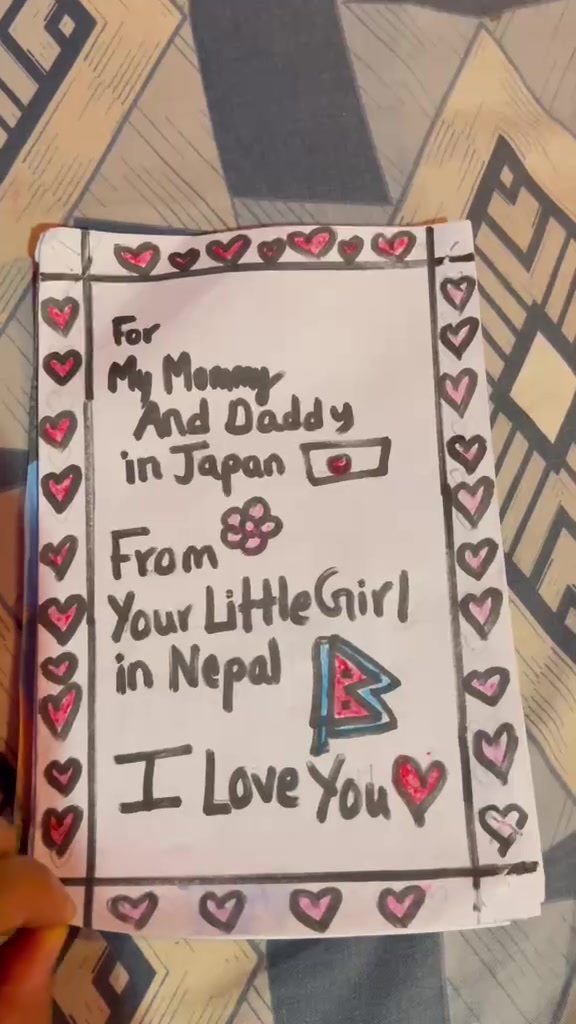 For
My Mommy
And Daddy
in Japan
From
Your Little Girl
in Nepal
I Love You